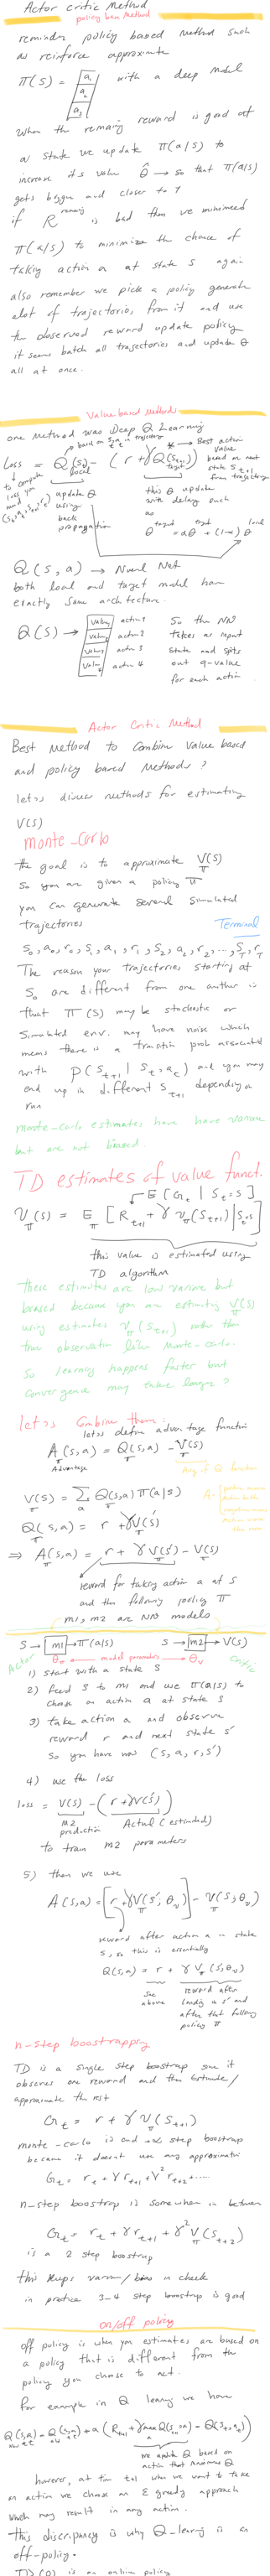 Actor critic Method
policy base Method
reminder policy based method such
as reinforce approximate
π(s) = a₁ a₂ a₃ with a deep model
when the remaing reward is good at
a state we update π(a|s) to
increase its value θ̂ → so that π(a|s)
gets bigger and closer to 1
if R is bad then we minimized
π(a|s) to minimize the chance of
taking action a at state s again
also remember we pick a policy generate
alot of trajectories from it and use
the observed reward update policy
it seems batch all trajectories and update θ
all at once.
Value based Methods
one method was Deep Q Learning
based on in trajectory
Best action value based on next state S_{t+1} from trajectory
Loss = Q(S_t) - (r + γ Q(S_{t+1}))
local target
to compute loss you need
update θ using back propagation
this θ update with delay such as
θ^target = αθ^target + (1-α) θ^local
Q(s, a) → Neural Net
both local and target model have
exactly same architecture.
Q(s) → value₁ action 1 value₂ action 2 value₃ action 3 value₄ action 4
So the NN takes as input state and spits out q-value for each action
Actor Critic Method
Best method to combine value based
and policy based methods ?
let's discuss methods for estimating
V(s)
monte-Carlo
the goal is to approximate V_π(s)
So you are given a policy π
you can generate several simulated
trajectories
Terminal
S₀, a₀, r₀, S₁, a₁, r₁, S₂, a₂, r₂, ..., S_T, r_T
The reason your trajectories starting at
S₀ are different from one another is
that π(s) may be stochastic or
Simulated env. may have noise which
means there is a transition prob associated
with P(S_{t+1} | S_t, a_t) and you may
end up in different S_{t+1} depending on
run
monte-carlo estimates have have variance
but are not biased.
TD estimates of value funct.
E[G_t | S_t = s]
V_π(s) = E_π [R_{t+1} + γ v_π(S_{t+1}) | S_t = s]
this value is estimated using
TD algorithm
These estimates are low varince but
biased because you are estimating V_π(s)
using estimates V_π(S_{t+1}) rather than
true observation like Monte-carlo.
So learning happens faster but
convergence may take longer ?
let's Combine them:
let's define advantage function
A_π(s,a) = Q_π(s,a) - V_π(s)
Advantage
Avg of Q function
V_π(s) = Σ_a Q_π(s,a) π(a|s)
Q_π(s,a) = r + γV_π(s')
⇒ A_π(s,a) = r + γ V_π(s') - V_π(s)
reward for taking action a at s
and the following policy π
m1, m2 are NN models
S → m1 → π(a|s) S → m2 → V(s)
Actor θ_π ← model parameters → θ_v Critic
1) Start with a state s
2) feed s to m1 and use π(a|s) to
choose an action a at state s
3) take action a and observe
reward r and next state s'
So you have now (s, a, r, s')
4) use the loss
loss = V(s) - (r + γV(s'))
m2 prediction Actual (estimated)
to train m2 parameters
5) then we use
A(s,a) = [r + γV_π(s'; θ_v)] - V_π(s; θ_v)
reward after action a in state
s, so this is essentially
Q(s,a) = r + γ V_π(s; θ_v)
see above
reward after landing a s' and after that following policy π
n-step boostrappng
TD is a single step boostrap since it
observes one reward and then estimate/
approximate the rest
G_t = r + γ V_π(S_{t+1})
monte-carlo is and +∞ step boostrap
because it doesnt use any approximation
G_t = r_t + γ r_{t+1} + γ² r_{t+2} + .....
n-step boostrap is somewhere in between
G_t = r_t + γ r_{t+1} + γ² V_π(S_{t+2})
is a 2 step boostrap
this keeps varian/bias in check
in practice 3-4 step boostrap is good
on/off policy
off policy is when you estimates are based on
a policy that is different from the
policy you choose to act.
for example in Q learning we have
Q(s_t,a_t) = Q(s_t,a_t) + α (R_{t+1} + γ max Q(s_{t+1}, a) - Q(s_t, a_t))
we update Q based on
action that maximizes Q
however, at time t+1 when we want to take
an action we choose an ε greedy approach
which may result in any action.
this discripancy is why Q-learning is an
off-policy.
TD(0) is an online policy